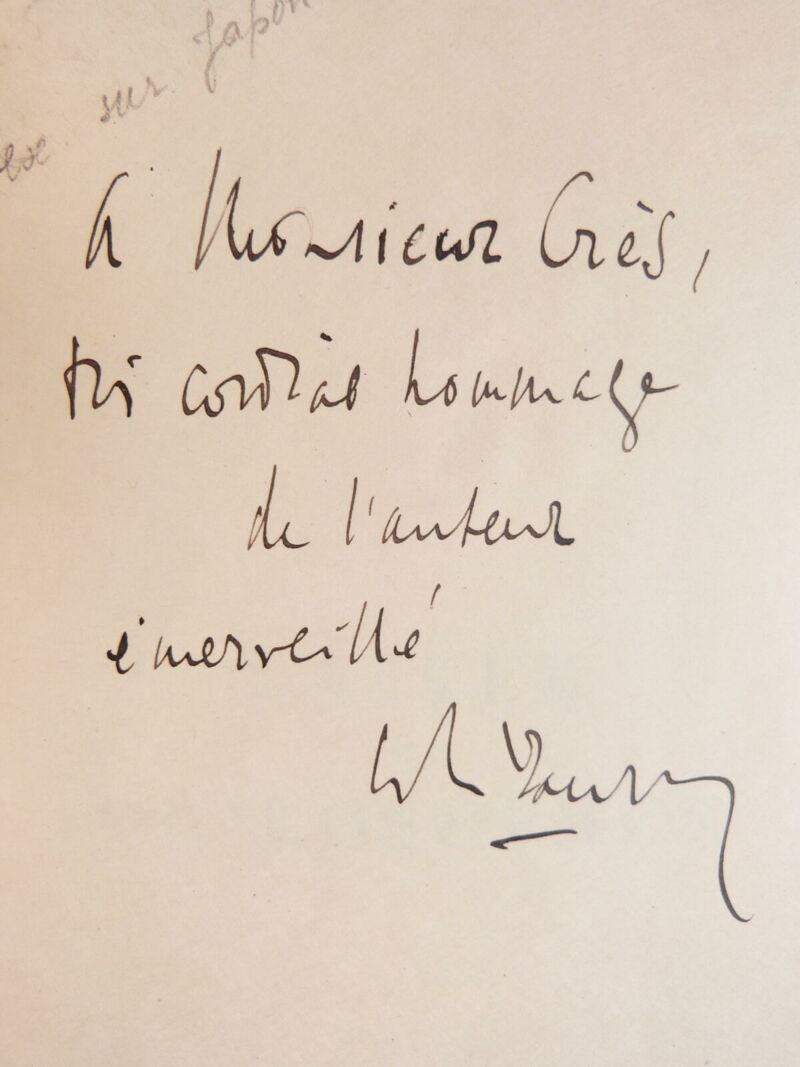 sur Japon
A Monsieur Crès,
très cordial hommage
de l'auteur
émerveillé